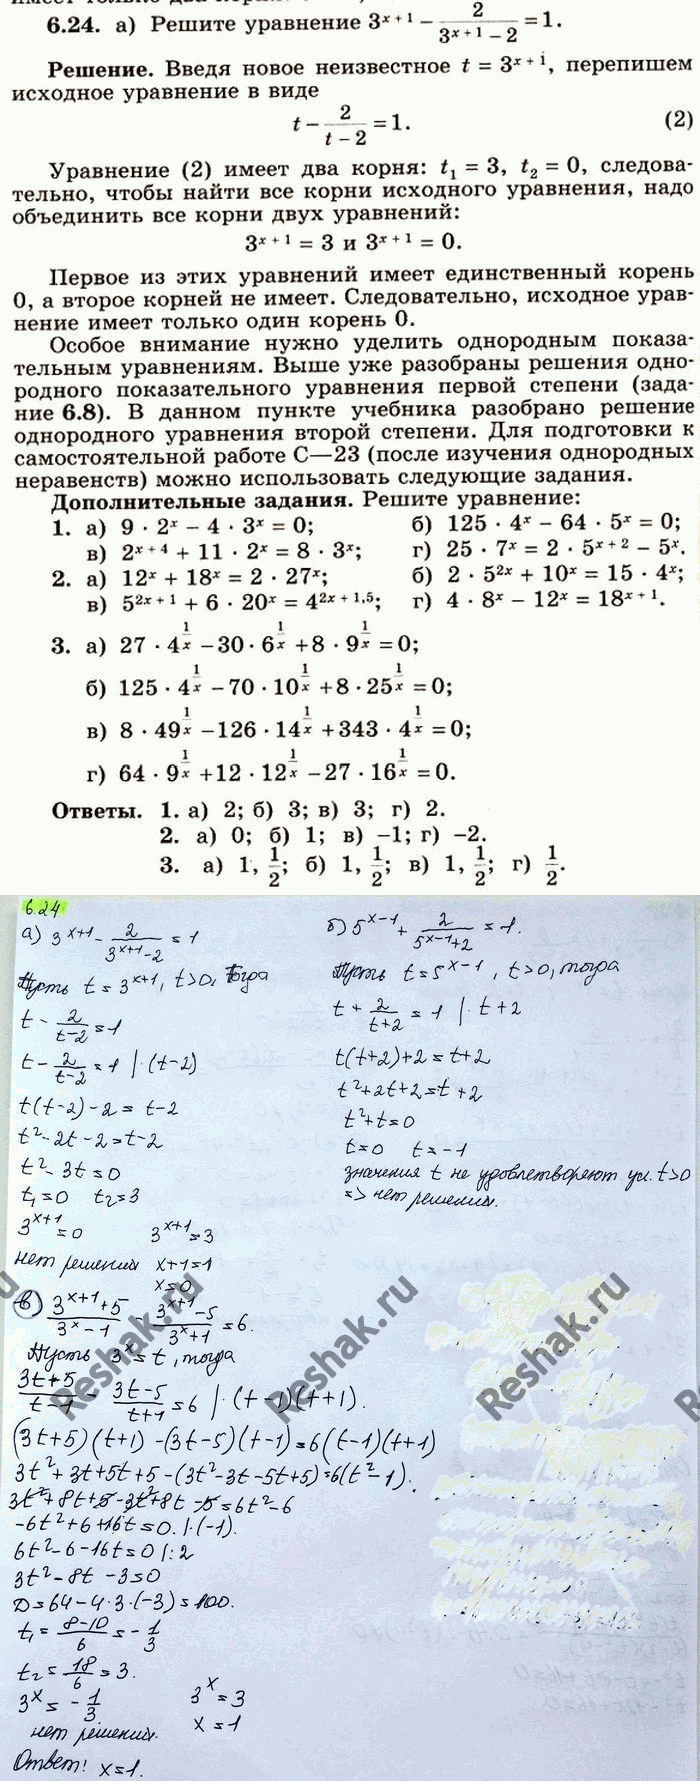 6.24. а) Решите уравнение 3^{x+1} − 2/(3^{x+1} − 2) = 1.
Решение. Введя новое неизвестное t = 3^{x+1}, перепишем
исходное уравнение в виде
t − 2/(t − 2) = 1. (2)
Уравнение (2) имеет два корня: t₁ = 3, t₂ = 0, следова-
тельно, чтобы найти все корни исходного уравнения, надо
объединить все корни двух уравнений:
3^{x+1} = 3 и 3^{x+1} = 0.
Первое из этих уравнений имеет единственный корень
0, а второе корней не имеет. Следовательно, исходное урав-
нение имеет только один корень 0.
Особое внимание нужно уделить однородным показа-
тельным уравнениям. Выше уже разобраны решения одно-
родного показательного уравнения первой степени (зада-
ние 6.8). В данном пункте учебника разобрано решение
однородного уравнения второй степени. Для подготовки к
самостоятельной работе С—23 (после изучения однородных
неравенств) можно использовать следующие задания.
Дополнительные задания. Решите уравнение:
1. а) 9 · 2^x − 4 · 3^x = 0; б) 125 · 4^x − 64 · 5^x = 0;
в) 2^{x+4} + 11 · 2^x = 8 · 3^x; г) 25 · 7^x = 2 · 5^{x+2} − 5^x.
2. а) 12^x + 18^x = 2 · 27^x; б) 2 · 5^{2x} + 10^x = 15 · 4^x;
в) 5^{2x+1} + 6 · 20^x = 4^{2x+1,5}; г) 4 · 8^x − 12^x = 18^{x+1}.
3. а) 27 · 4^{1/x} − 30 · 6^{1/x} + 8 · 9^{1/x} = 0;
б) 125 · 4^{1/x} − 70 · 10^{1/x} + 8 · 25^{1/x} = 0;
в) 8 · 49^{1/x} − 126 · 14^{1/x} + 343 · 4^{1/x} = 0;
г) 64 · 9^{1/x} + 12 · 12^{1/x} − 27 · 16^{1/x} = 0.
Ответы. 1. а) 2; б) 3; в) 3; г) 2.
2. а) 0; б) 1; в) −1; г) −2.
3. а) 1, 1/2; б) 1, 1/2; в) 1, 1/2; г) 1/2.
6.24
а) 3^{x+1} − 2/(3^{x+1} − 2) = 1
Пусть t = 3^{x+1}, t>0, тогда
t − 2/(t−2) = 1
t − 2/(t−2) = 1 | · (t−2)
t(t−2) − 2 = t−2
t² − 2t − 2 = t−2
t² − 3t = 0
t₁ = 0 t₂ = 3
3^{x+1} = 0 3^{x+1} = 3
нет решений x+1=1
x=0
б) 5^{x−1} + 2/(5^{x−1}+2) = 1.
Пусть t = 5^{x−1}, t>0, тогда
t + 2/(t+2) = 1 | · t+2
t(t+2)+2 = t+2
t²+2t+2 = t+2
t²+t=0
t=0 t=−1
значения t не удовлетвореют усл. t>0
=> нет решений.
в) (3^{x+1}+5)/(3^x−1) − (3^{x+1}−5)/(3^x+1) = 6.
Пусть 3^x = t, тогда
(3t+5)/(t−1) − (3t−5)/(t+1) = 6 | · (t−1)(t+1).
(3t+5)(t+1) − (3t−5)(t−1) = 6(t−1)(t+1)
3t²+3t+5t+5−(3t²−3t−5t+5)=6(t²−1).
3t²+8t+5−3t²+8t−5=6t²−6
−6t²+6+16t=0. | · (−1).
6t²−6−16t=0 | : 2
3t²−8t−3=0
D=64−4·3·(−3)=100.
t₁ = (8−10)/6 = −1/3
t₂ = 18/6 = 3.
3^x = −1/3 3^x = 3
нет решений. x=1
Ответ: x=1.
Reshak.ru
Reshak.ru
Reshak.ru